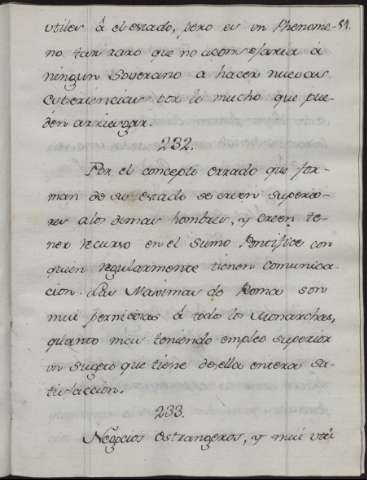 utiles á el estado, pero es un Phenome- 51.
no tan raro que no aconsejaria á
ningun Soverano a hacer nuevas
experiencias por lo mucho que pue-
den arriesgar.
232.
Por el concepto errado que for-
man de su estado se creen superio-
res a los demas hombres, y creen te-
ner recurso en el Sumo Pontifice con
quien regularmente tienen comunica-
cion. Las Maximas de Roma son
mui perniciosas á todos los Monarchas,
quanto mas teniendo empleo superior
un sugeto que tiene de ella entera sa-
tisfaccion.
233.
Negocios estrangeros, y mui uti